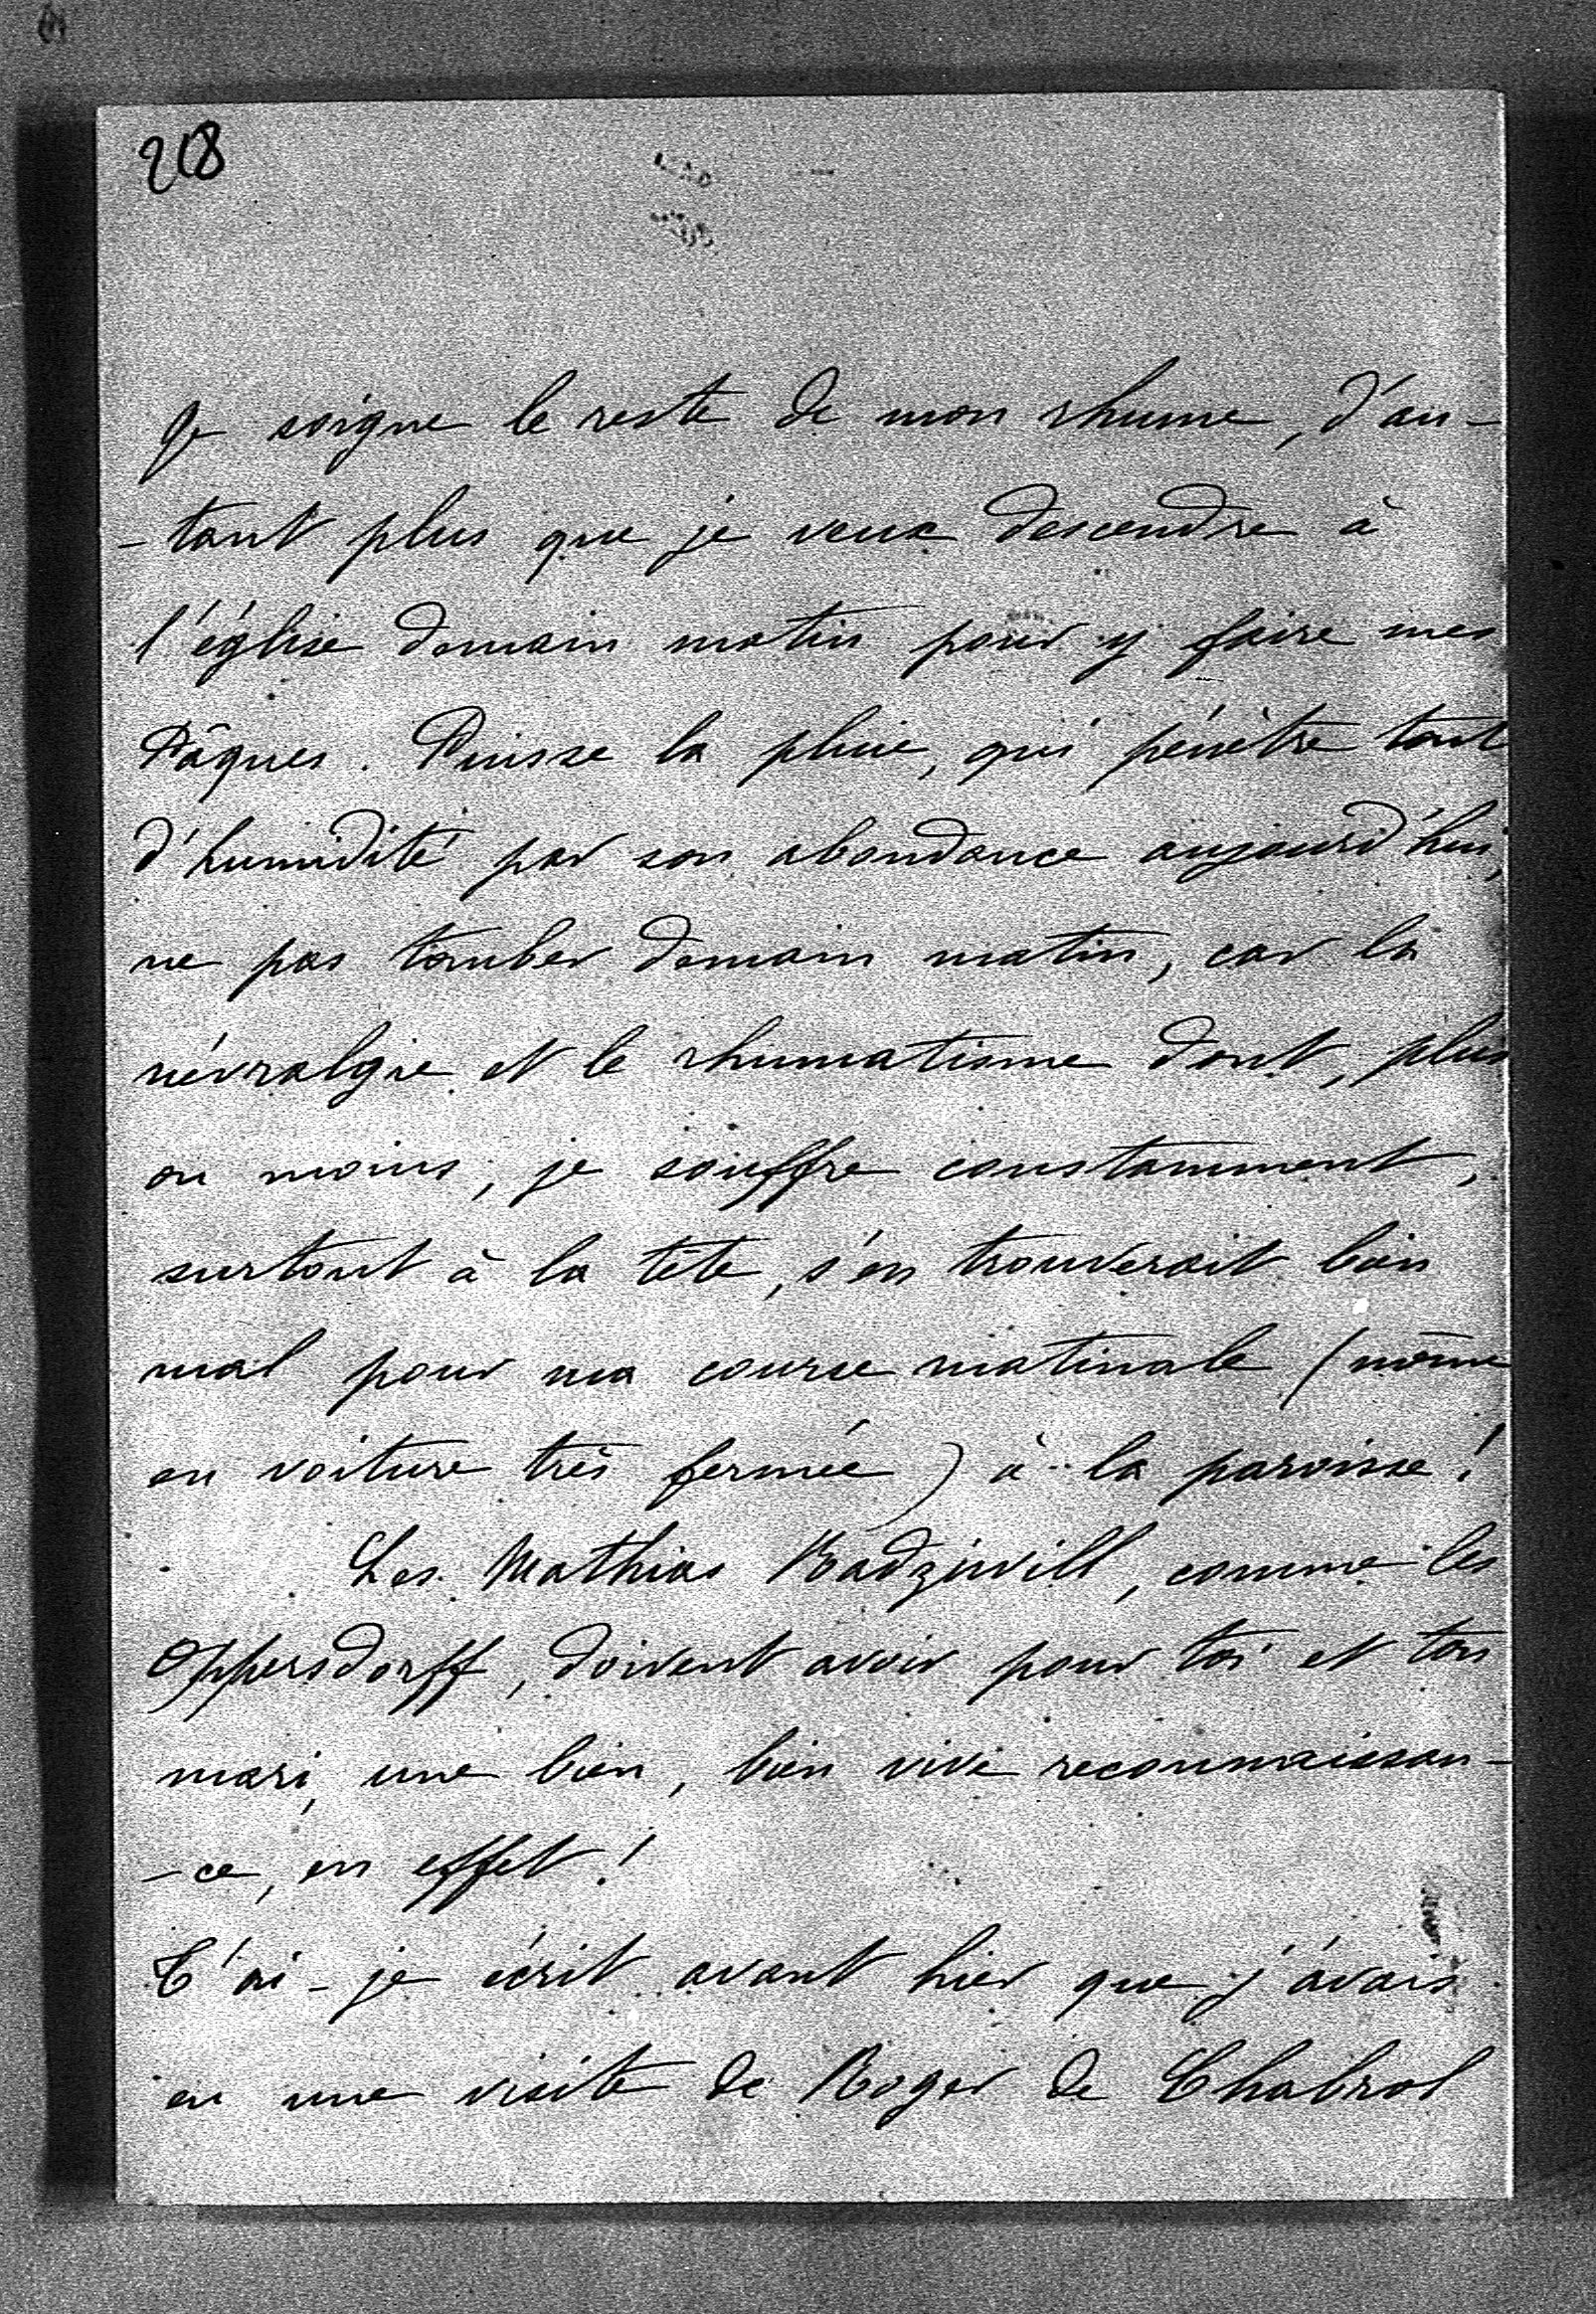 208
Je soigne le reste de mon rhume, d'au-
-tant plus que je veux descendre à
l'église demain matin pour y faire mes
Pâques. Puisse la pluie, qui pénètre tout
d'humidité par son abondance aujourd'hui,
ne pas tomber demain matin, car la
névralgie et le rhumatisme dont, plus
ou moins, je souffre constamment,
surtout à la tête, s'en trouverait bien
mal pour ma course matinale (même
en voiture très fermée) à la paroisse!
Les Mathias Radziwill, comme les
Oppersdorff, doivent avoir pour toi et ton
mari, une bien, bien vive reconnaissan-
-ce, en effet!
T'ai-je écrit avant hier que j'avais
eu une visite de Roger de Chabrol